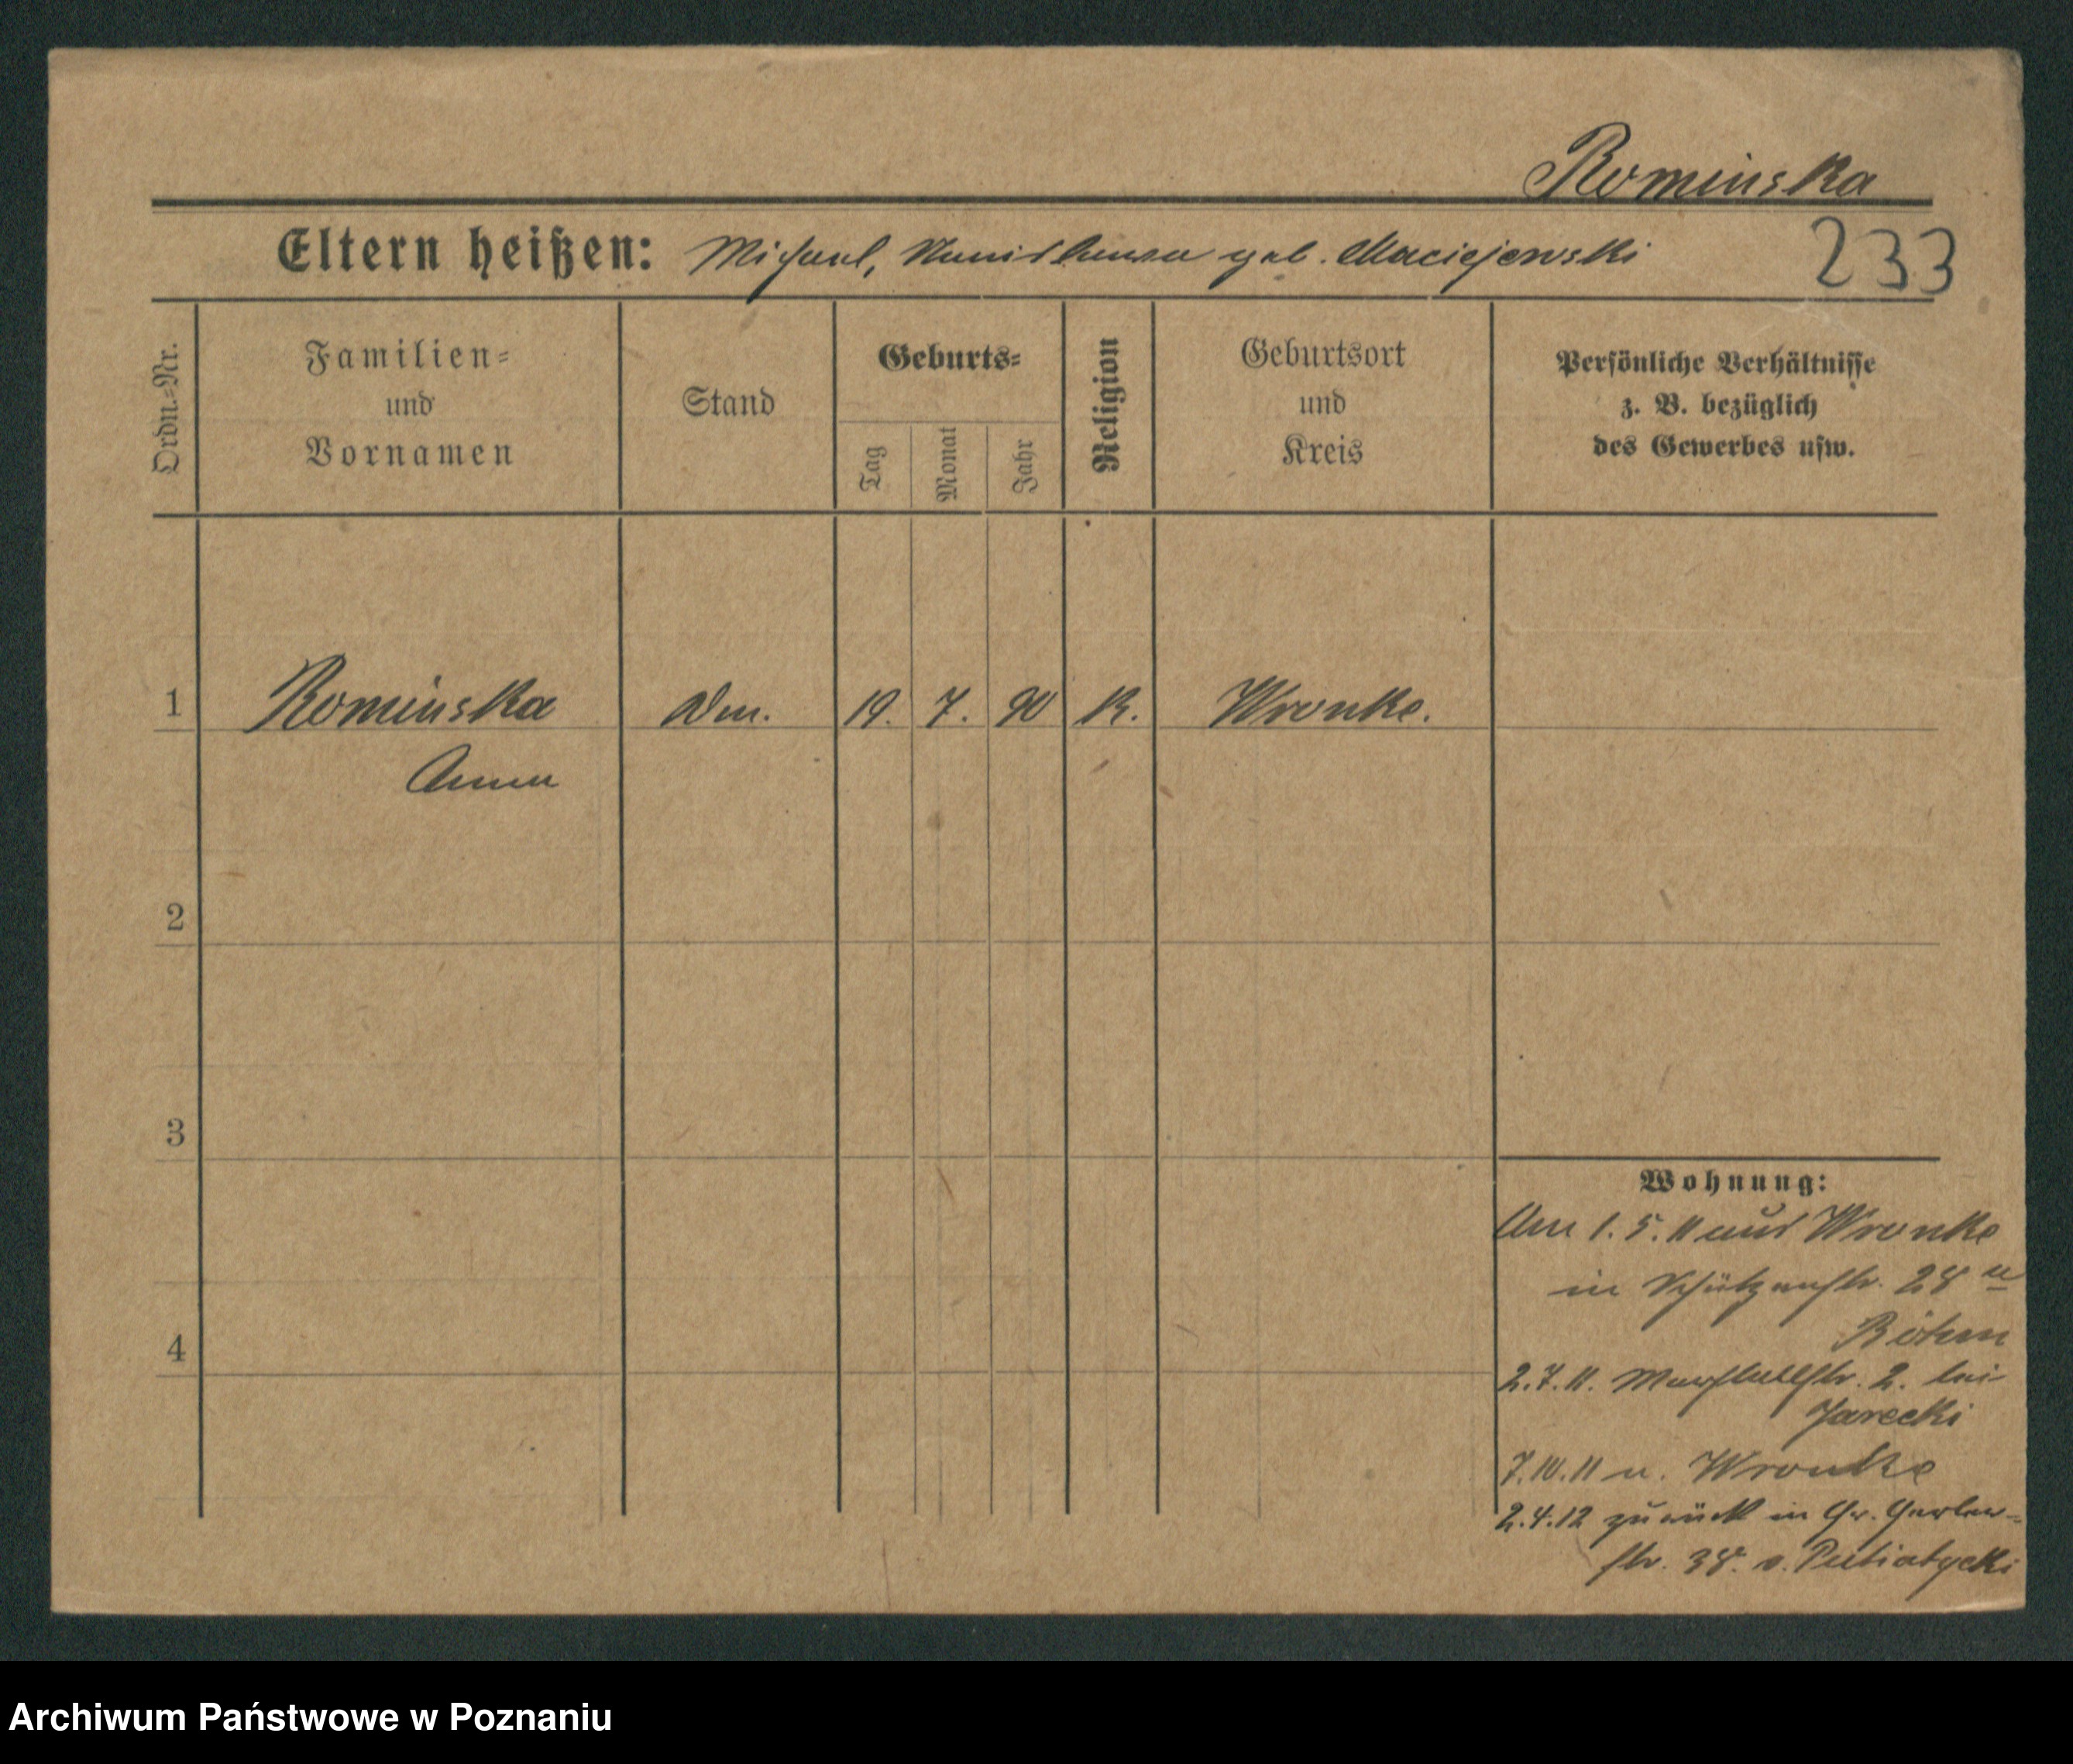 Rominska
Eltern heißen: Michael, Stanislawa geb. Maciejewski
233
Ordn.=Nr.
Familien=
und
Vornamen
Stand
Geburts=
Tag
Monat
Jahr
Religion
Geburtsort
und
Kreis
Persönliche Verhältnisse
z. B. bezüglich
des Gewerbes usw.
1 Rominska 19. 7. 90 K. Wronke.
Anna
2
3
4
Wohnung:
Am 1.5.11 aus Wronke
in Schützenstr. 28
2.7.11. Marstallstr. 2. bei
Jarecki
7.10.11 n. Wronke
2.4.12 zurück in Gr. Gerber=
str. 38.
Archiwum Państwowe w Poznaniu